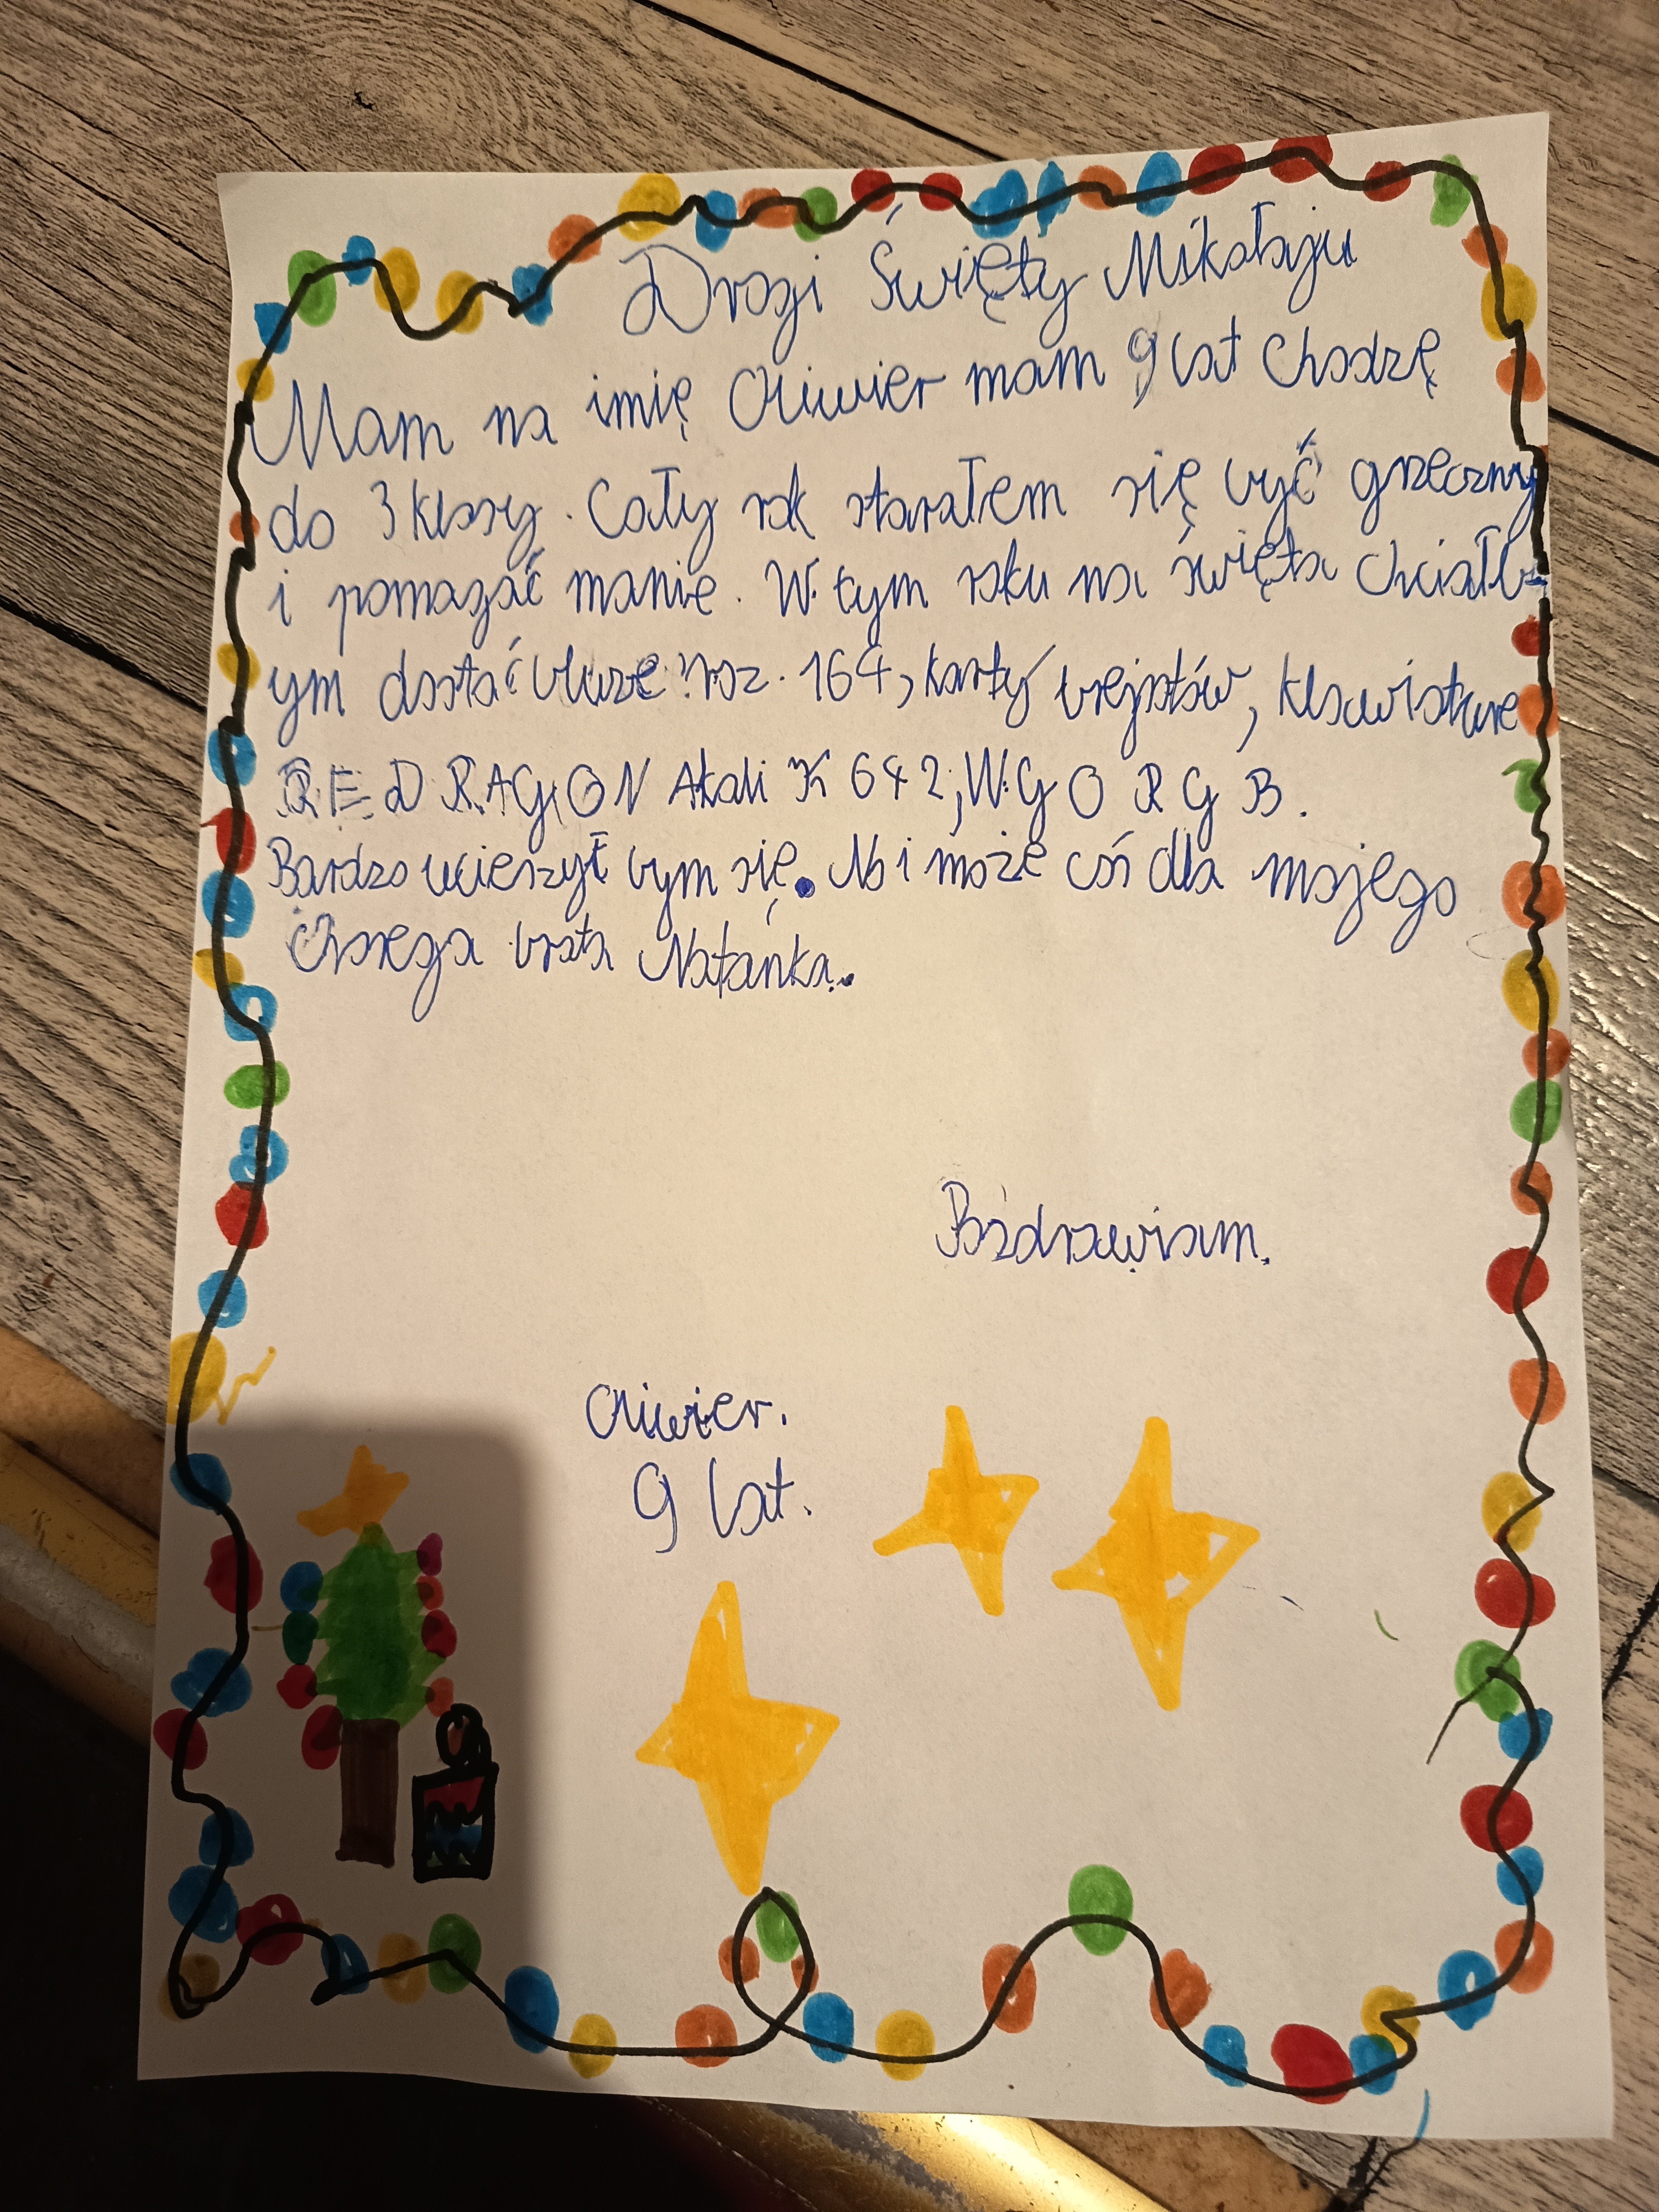 Drogi Święty Mikołaju
Mam na imię Oliwier mam 9 lat Chodzę
do 3 klasy. Cały rok starałem się być grzeczny
i pomagać mamie. W tym roku na święta Chciałb
ym dostać bluze roz. 164, karty brejotów, klawiature
REDRAGON Akali K 642, WGO RGB.
Bardzo ucieszył bym się. No i może coś dla mojego
chorego brata Natanka.
Pozdrawiam.
Oliwier.
9 lat.